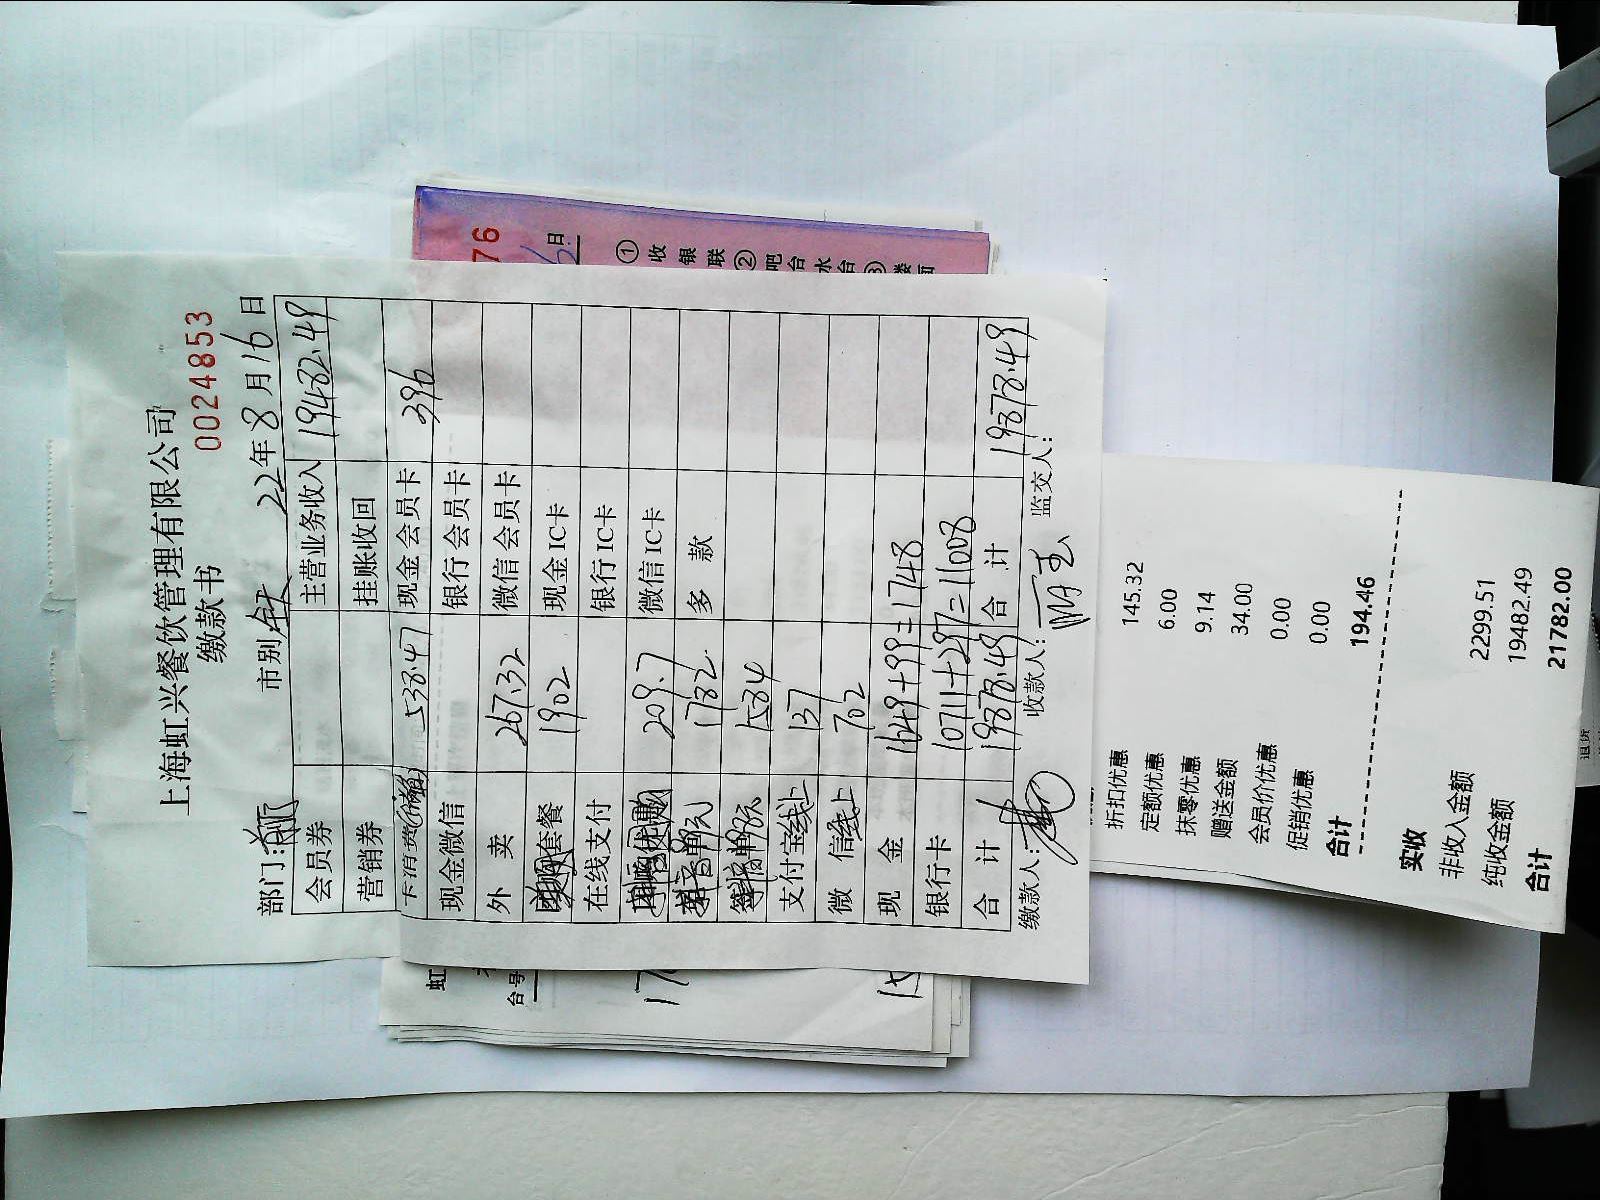 上海虹兴餐饮管理有限公司
缴款书
0024853
部门: 市别: 22年8月16日
会员券 主营业务收入 19482.49
营销券 挂账收回
卡消费 538.47 现金会员卡 396
现金微信 银行会员卡
外 卖 267.32 微信会员卡
套餐 1902 现金IC卡
在线支付 银行IC卡
209.7 微信IC卡
1782 多 款
1584
支付宝线上 137
微 信线上 702
现 金 1649+99=1748
银行卡 10711+297=11008
合 计 19878.49 合 计 19878.49
缴款人: 收款人: 监交人:
76
日
①
收
银
联
②
吧
台
水
台
③
楼
面
虹
台号
折扣优惠 145.32
定额优惠 6.00
抹零优惠 9.14
赠送金额 34.00
会员价优惠 0.00
促销优惠 0.00
合计 194.46
实收
非收入金额 2299.51
纯收金额 19482.49
合计 21782.00
退货